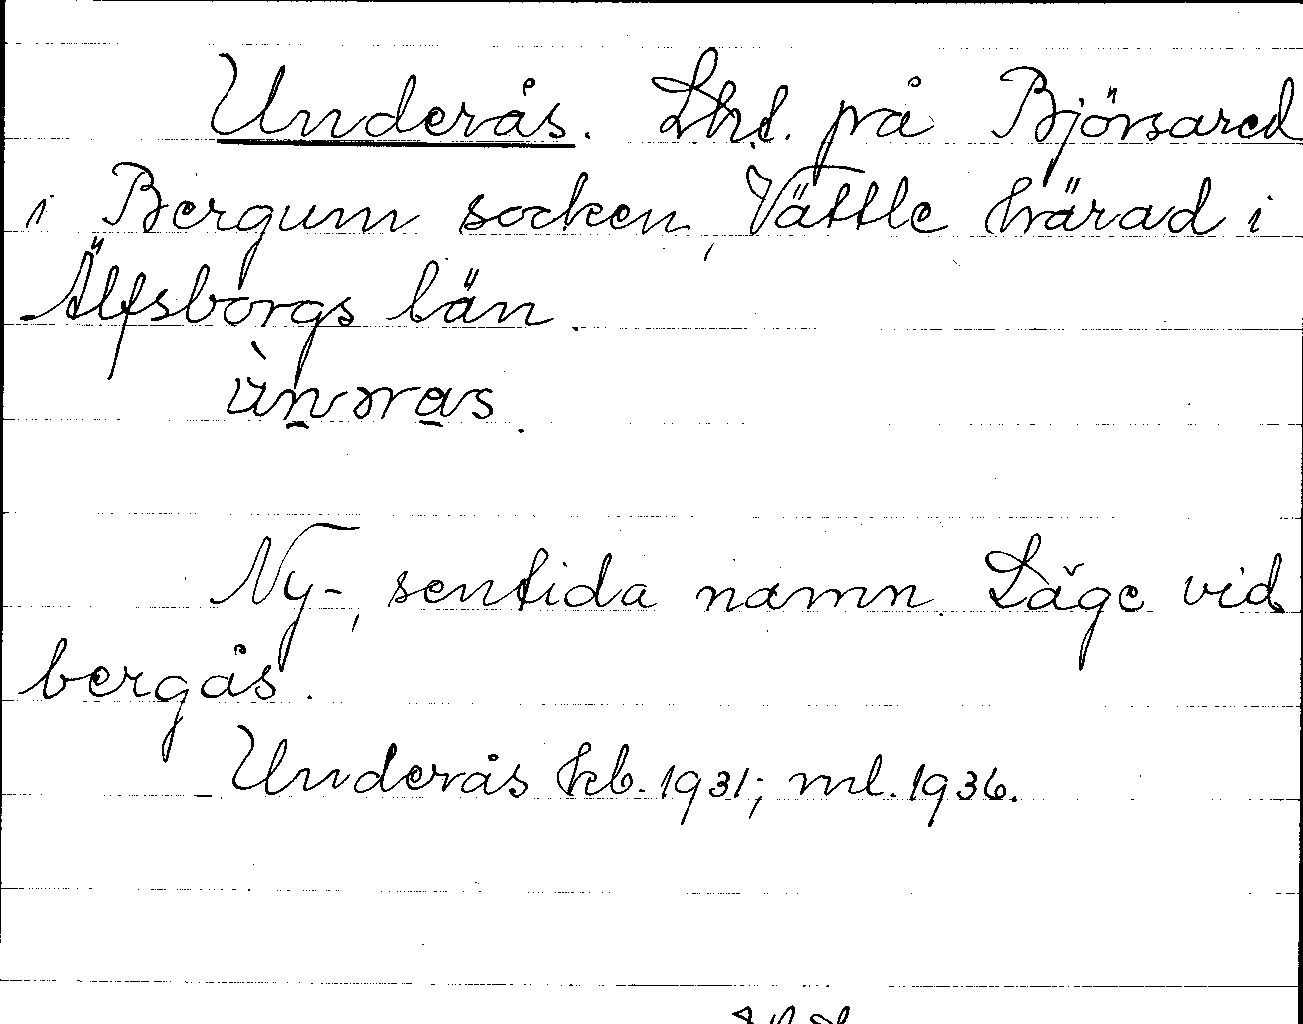 Underås. Lht. på Björsared
i Bergum socken, Vättle härad i
Älfsborgs län.
ùnəras.
Ny-, sentida namn. Läge vid
bergås.
Underås kb. 1931; ml. 1936.